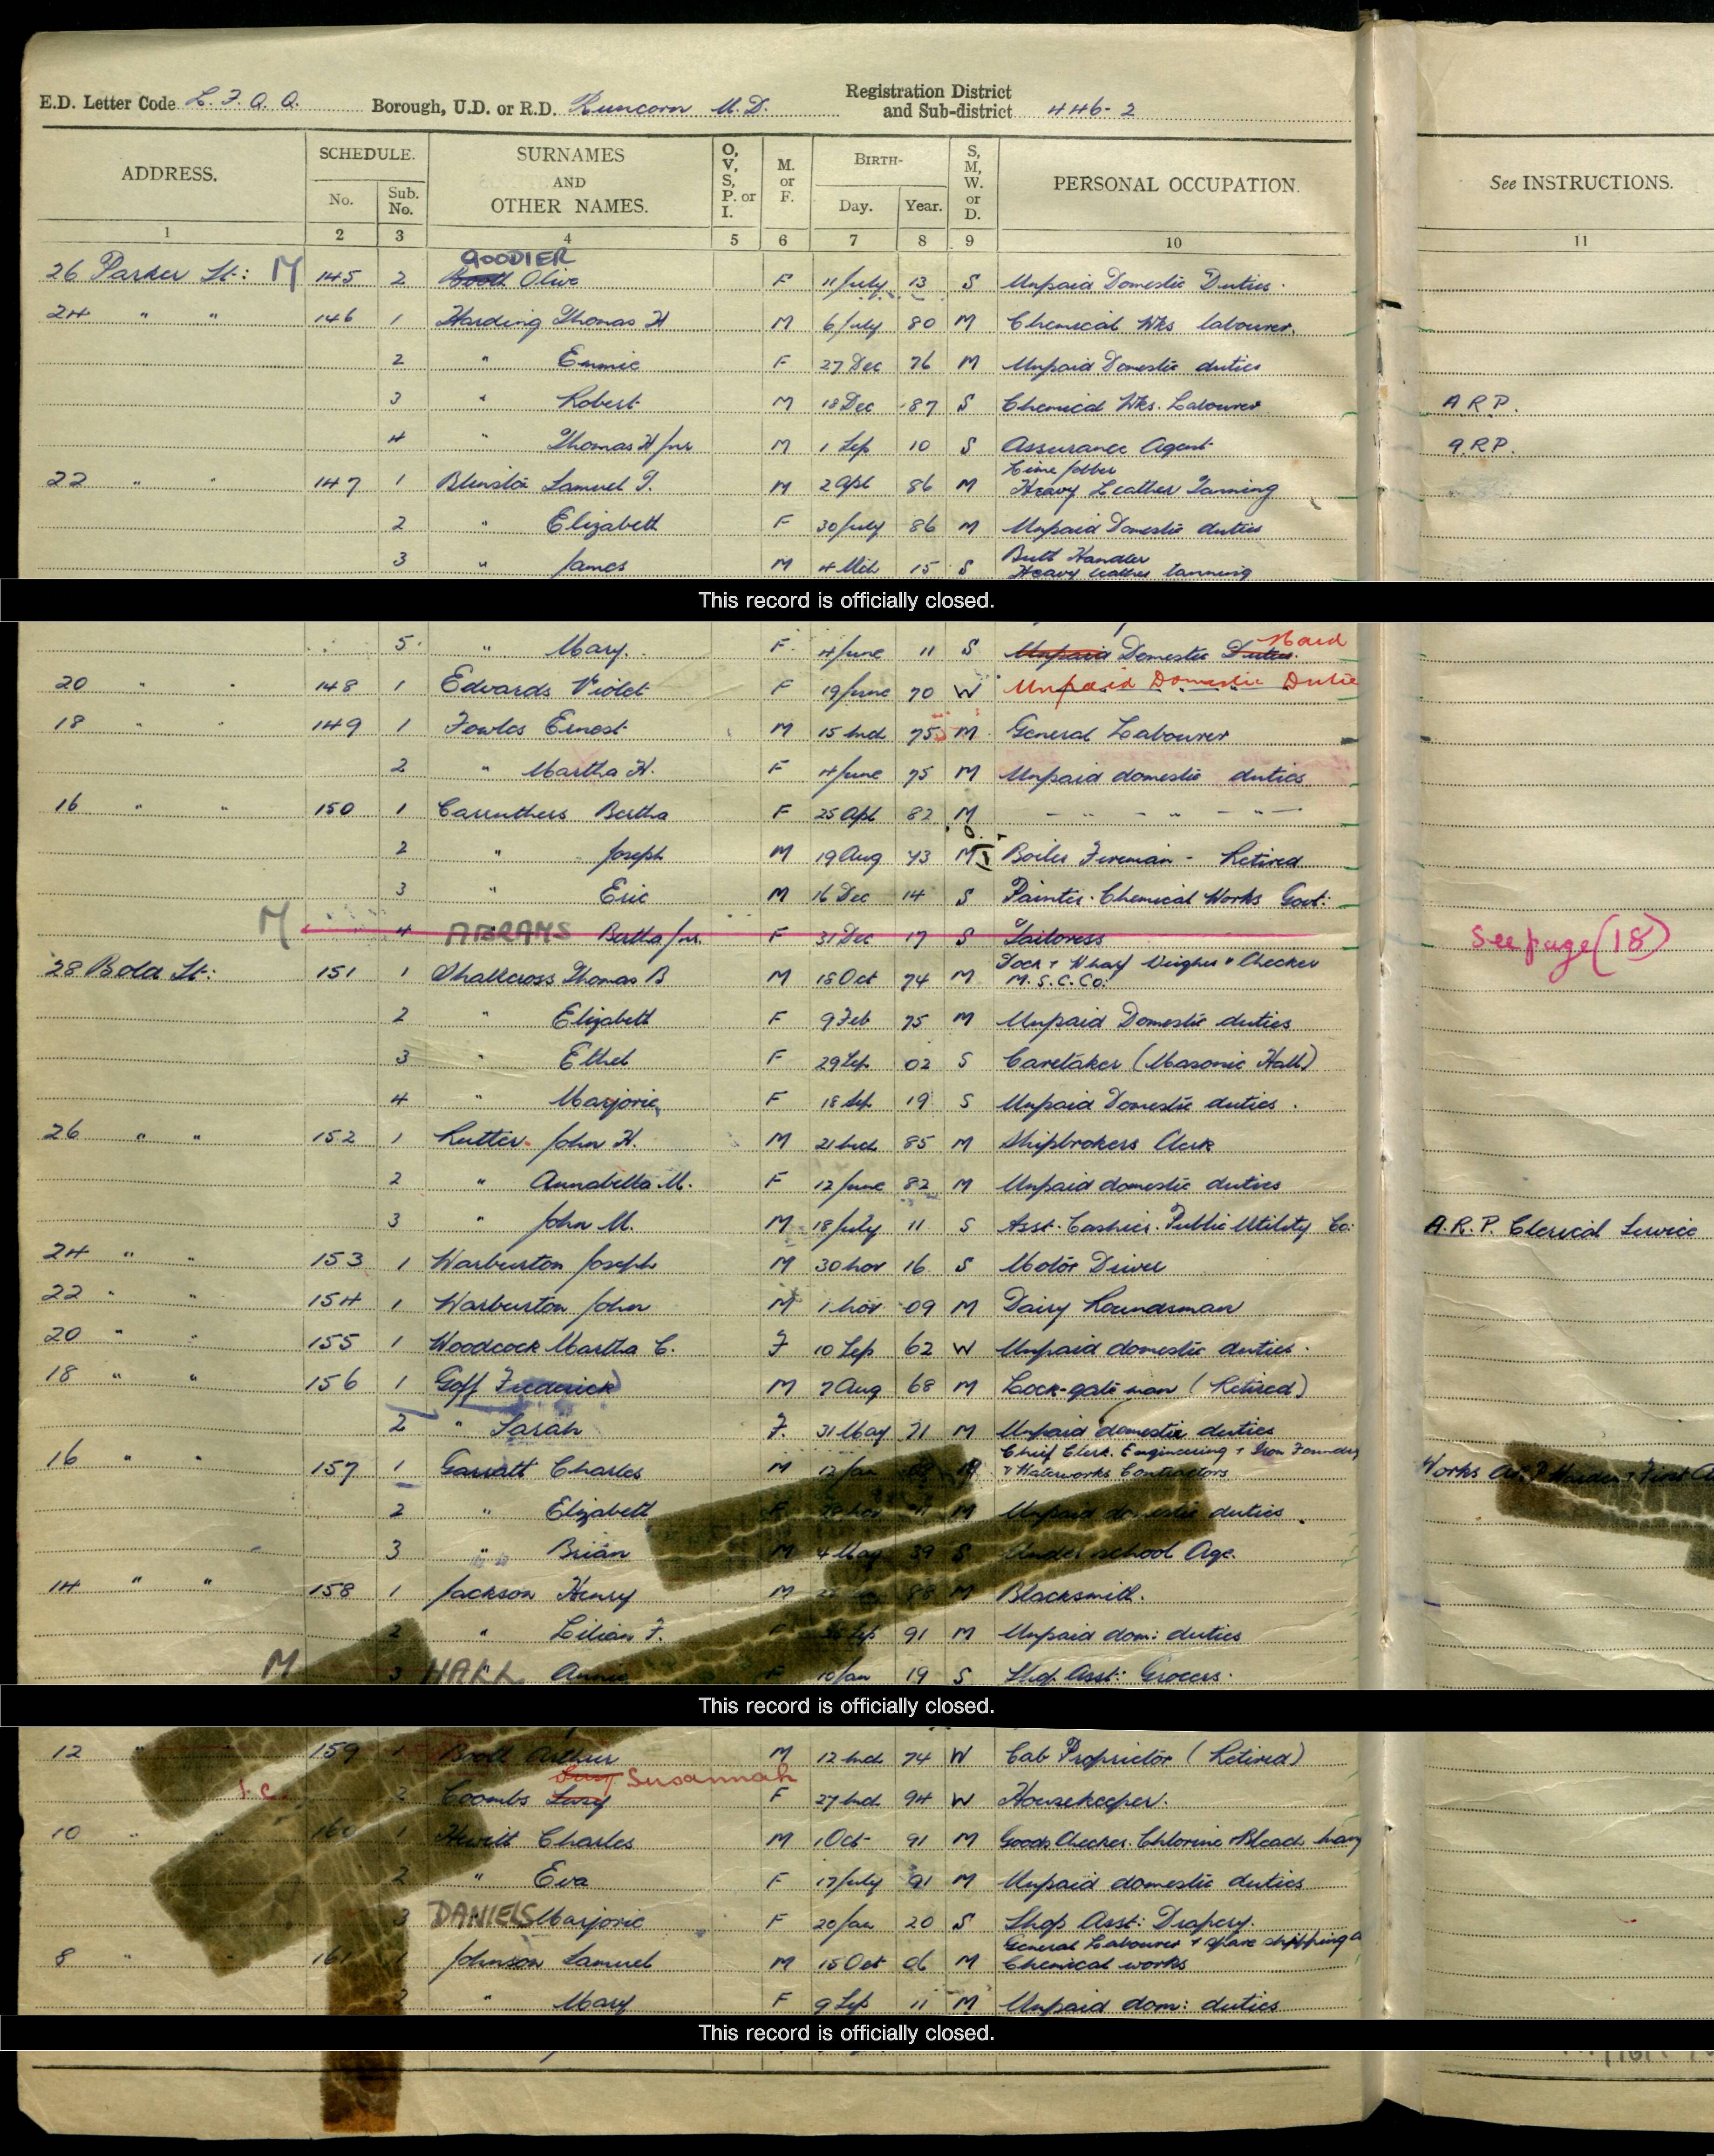 E.D. Letter Code L. F. Q. Q. Borough, U.D. or R.D. Runcorn U.D. Registration District and Sub-district 446-2
ADDRESS. SCHEDULE. No. Sub. No. SURNAMES AND OTHER NAMES. O, V, S, P. or I. M. or F. BIRTH- Day. Year. S, M, W. or D. PERSONAL OCCUPATION. See INSTRUCTIONS.
1 2 3 4 5 6 7 8 9 10 11
GOODIER
26 Parker St: M 145 2 Booth Olive F 11 July 13 S Unpaid Domestic Duties.
24 " " 146 1 Harding Thomas H M 6 July 80 M Chemical Wks labourer.
2 " Emmie F 27 Dec 76 M Unpaid Domestic duties
3 " Robert M 18 Dec 87 S Chemical Wks. Labourer A R P.
4 " Thomas H Jnr M 1 Sep 10 S Assurance Agent A.R.P.
22 " " 147 1 Samuel T. M 2 Apl 86 M Lime Jobber Heavy Leather Tanning
2 " Elizabeth F 30 July 86 M Unpaid Domestic duties
3 " James M 4 Mch 15 S Butt Handler Heavy leather tanning
This record is officially closed.
5 " Mary. F 4 June 11 S Unpaid Domestic Duties. Maid
20 " " 148 1 Edwards Violet F 19 June 70 W Unpaid Domestic Dutie
18 " " 149 1 Fowles Ernest M 15 Mch 75 M General Labourer
2 " Martha H. F 4 June 75 M Unpaid domestic duties
16 " " 150 1 Carruthers Bertha F 25 Apl 82 M - " - " - " -
2 " Joseph M 19 Aug 73 M Boiler Fireman - Retired
3 " Eric M 16 Dec 14 S Painter. Chemical Works Govt:
M 4 ABRAMS Bertha Jnr. F 31 Dec 17 S Tailoress See page (18)
28 Bold St: 151 1 Shallcross Thomas B M 18 Oct 74 M Dock & Wharf Weigher & Checker M.S.C.Co:
2 " Elizabeth F 9 Feb 75 M Unpaid Domestic duties
3 " Ethel F 29 Sep 02 S Caretaker (Masonic Hall)
4 " Marjorie F 18 Sep 19 S Unpaid Domestic duties.
26 " " 152 1 Rutter John H. M 21 Mch 85 M Shipbrokers Clerk
2 " Annabella M. F 12 June 82 M Unpaid domestic duties
3 " John M. M 18 July 11 S Asst. Cashier. Public Utility Co: A.R.P. Clerical Service
24 " " 153 1 Warburton Joseph M 30 Nov 16 S Motor Driver
22 " " 154 1 Warburton John M 1 Nov 09 M Dairy Roundsman
20 " " 155 1 Woodcock Martha C. F 10 Sep 62 W Unpaid domestic duties.
18 " " 156 1 Goff Frederick M 7 Aug 68 M Lock-gate man (Retired)
2 " Sarah F. 31 May 71 M Unpaid domestic duties
16 " " 157 1 Garratt Charles M 12 Jan M Chief Clerk. Engineering & Iron Foundry & Waterworks Contractors Works A.R.P Warden & First A
2 " Elizabeth F Nov 11 M Unpaid domestic duties.
3 " Brian M 4 May 39 S Under school Age.
14 " " 158 1 Jackson Henry M 88 M Blacksmith.
2 " Lilian F. F Sep 91 M Unpaid dom: duties
M 3 HALL Annie F 10 Jan 19 S Shop Asst: Grocers.
This record is officially closed.
12 " 159 1 Booth Arthur M 12 Mch 74 W Cab Proprietor (Retired)
Lucy Susannah
S.C. 2 Coombs Lucy F 27 Mch 94 W Housekeeper.
10 " 160 1 Hewitt Charles M 1 Oct 91 M Goods Checker. Chlorine & Bleach
2 " Eva F 17 July 91 M Unpaid domestic duties
3 DANIELS Marjorie F 20 Jan 20 S Shop Asst: Drapery.
8 " " 161 1 Johnson Samuel M 15 Oct 06 M General Labourer & spare shipping Chemical works
2 " Mary F 9 Sep 11 M Unpaid dom: duties
This record is officially closed.